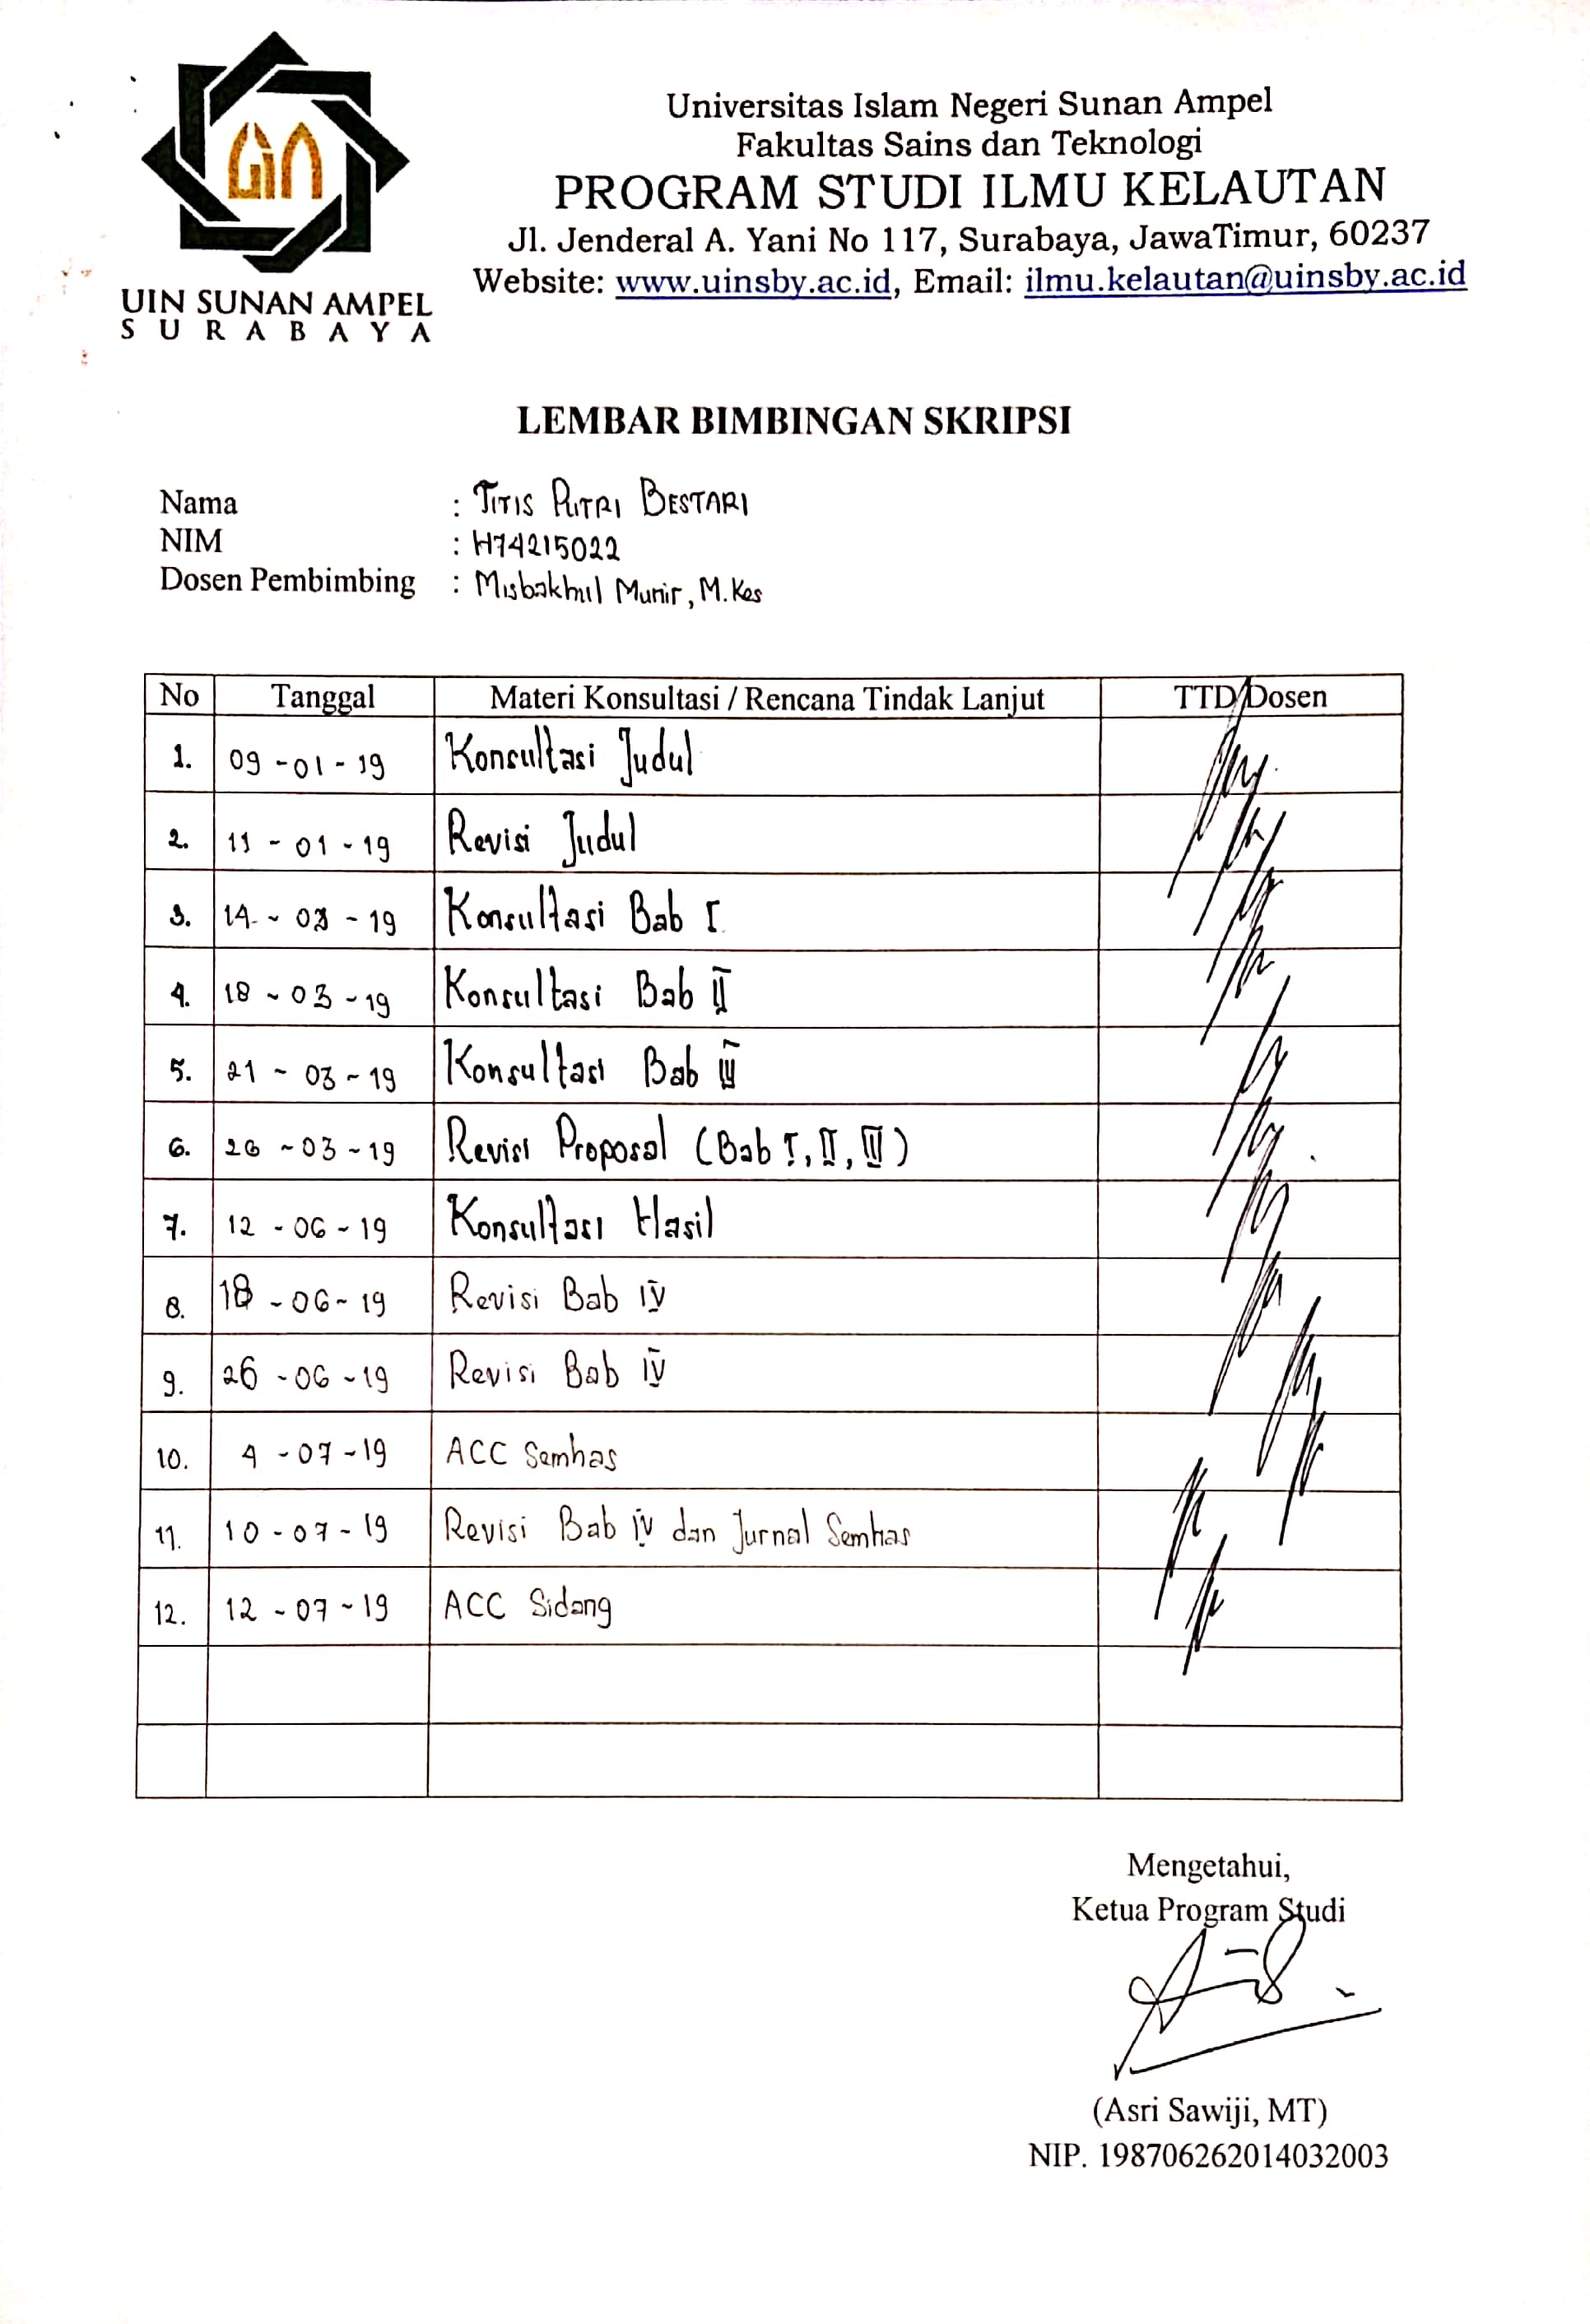 Universitas Islam Negeri Sunan Ampel
Fakultas Sains dan Teknologi
PROGRAM STUDI ILMU KELAUTAN
Jl. Jenderal A. Yani No 117, Surabaya, JawaTimur, 60237
Website: www.uinsby.ac.id, Email: ilmu.kelautan@uinsby.ac.id
UIN SUNAN AMPEL
S U R A B A Y A
LEMBAR BIMBINGAN SKRIPSI
Nama : TITIS PUTRI BESTARI
NIM : H74215022
Dosen Pembimbing : Misbakhul Munir, M.Kes
No Tanggal Materi Konsultasi / Rencana Tindak Lanjut TTD Dosen
1. 09-01-19 Konsultasi Judul
2. 11-01-19 Revisi Judul
3. 14-03-19 Konsultasi Bab I
4. 18-03-19 Konsultasi Bab II
5. 21-03-19 Konsultasi Bab III
6. 26-03-19 Revisi Proposal (Bab I, II, III)
7. 12-06-19 Konsultasi Hasil
8. 18-06-19 Revisi Bab IV
9. 26-06-19 Revisi Bab IV
10. 4-07-19 ACC Semhas
11. 10-07-19 Revisi Bab IV dan Jurnal Semhas
12. 12-07-19 ACC Sidang
Mengetahui,
Ketua Program Studi
(Asri Sawiji, MT)
NIP. 198706262014032003